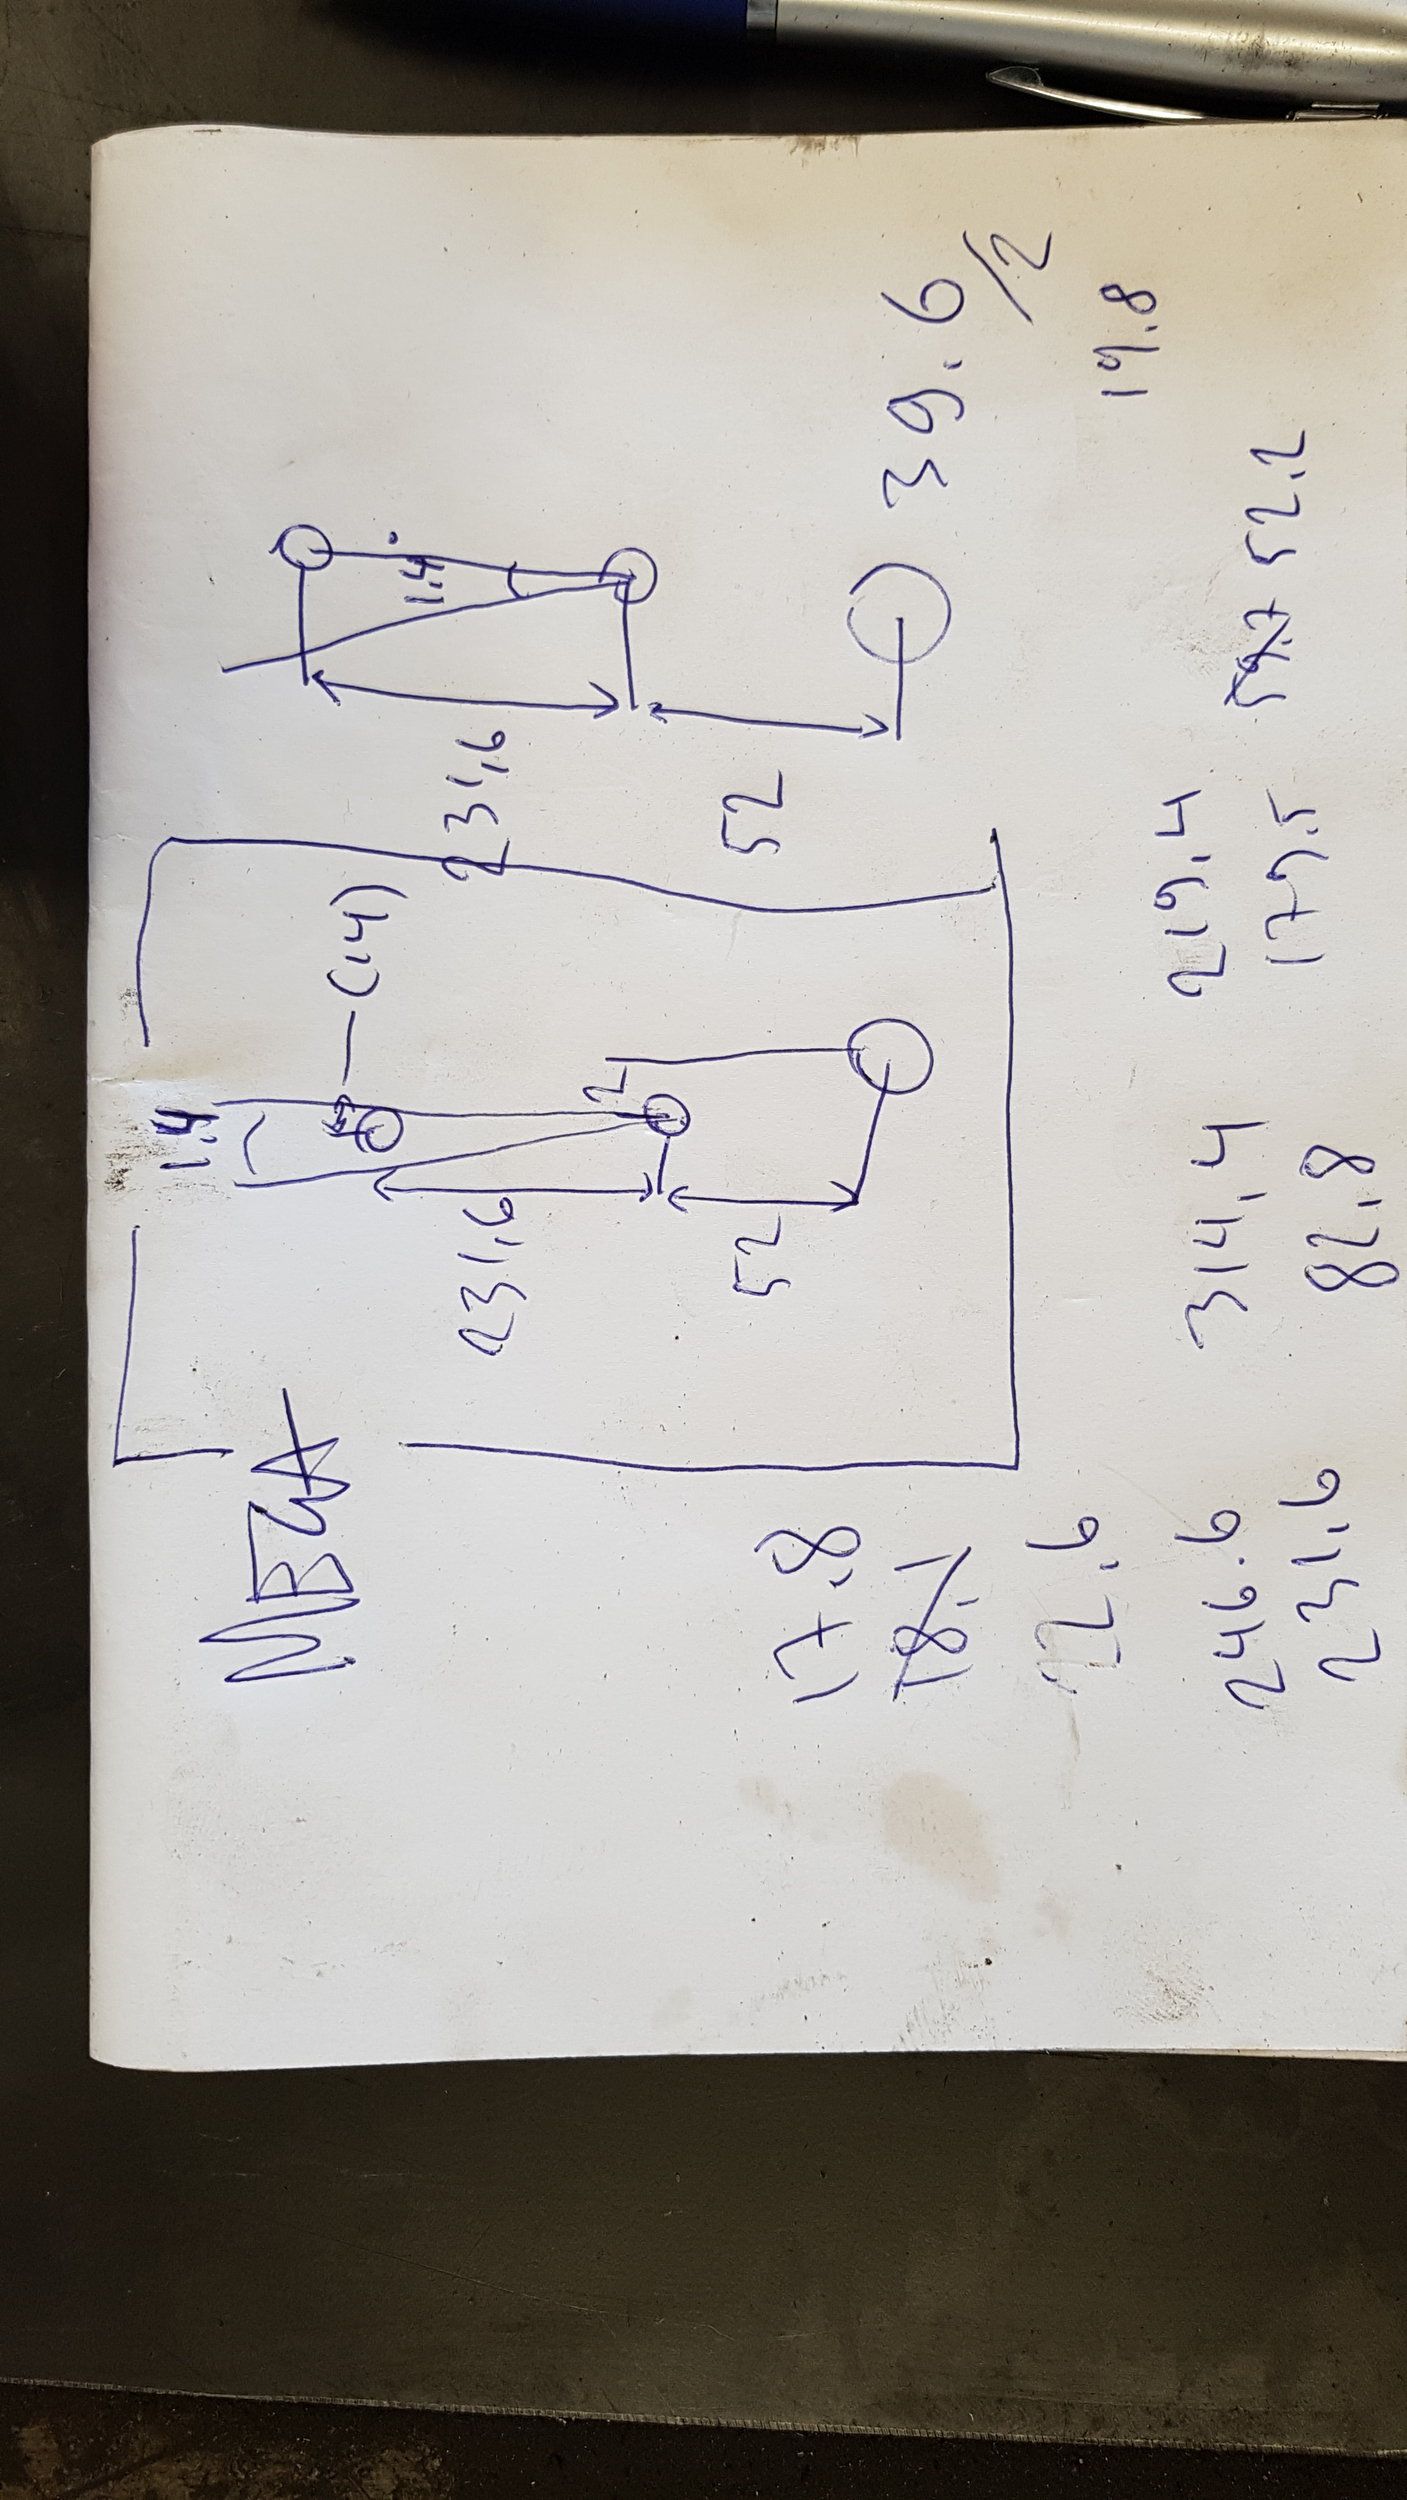 1.4
MEGA
(14)
1.4°
231,6
231,6
2
52
52
17.8
39.6
/2
18.1
12.6
19.8
246.6
314,4
219.4
231.6
82.8
179.5
52.2